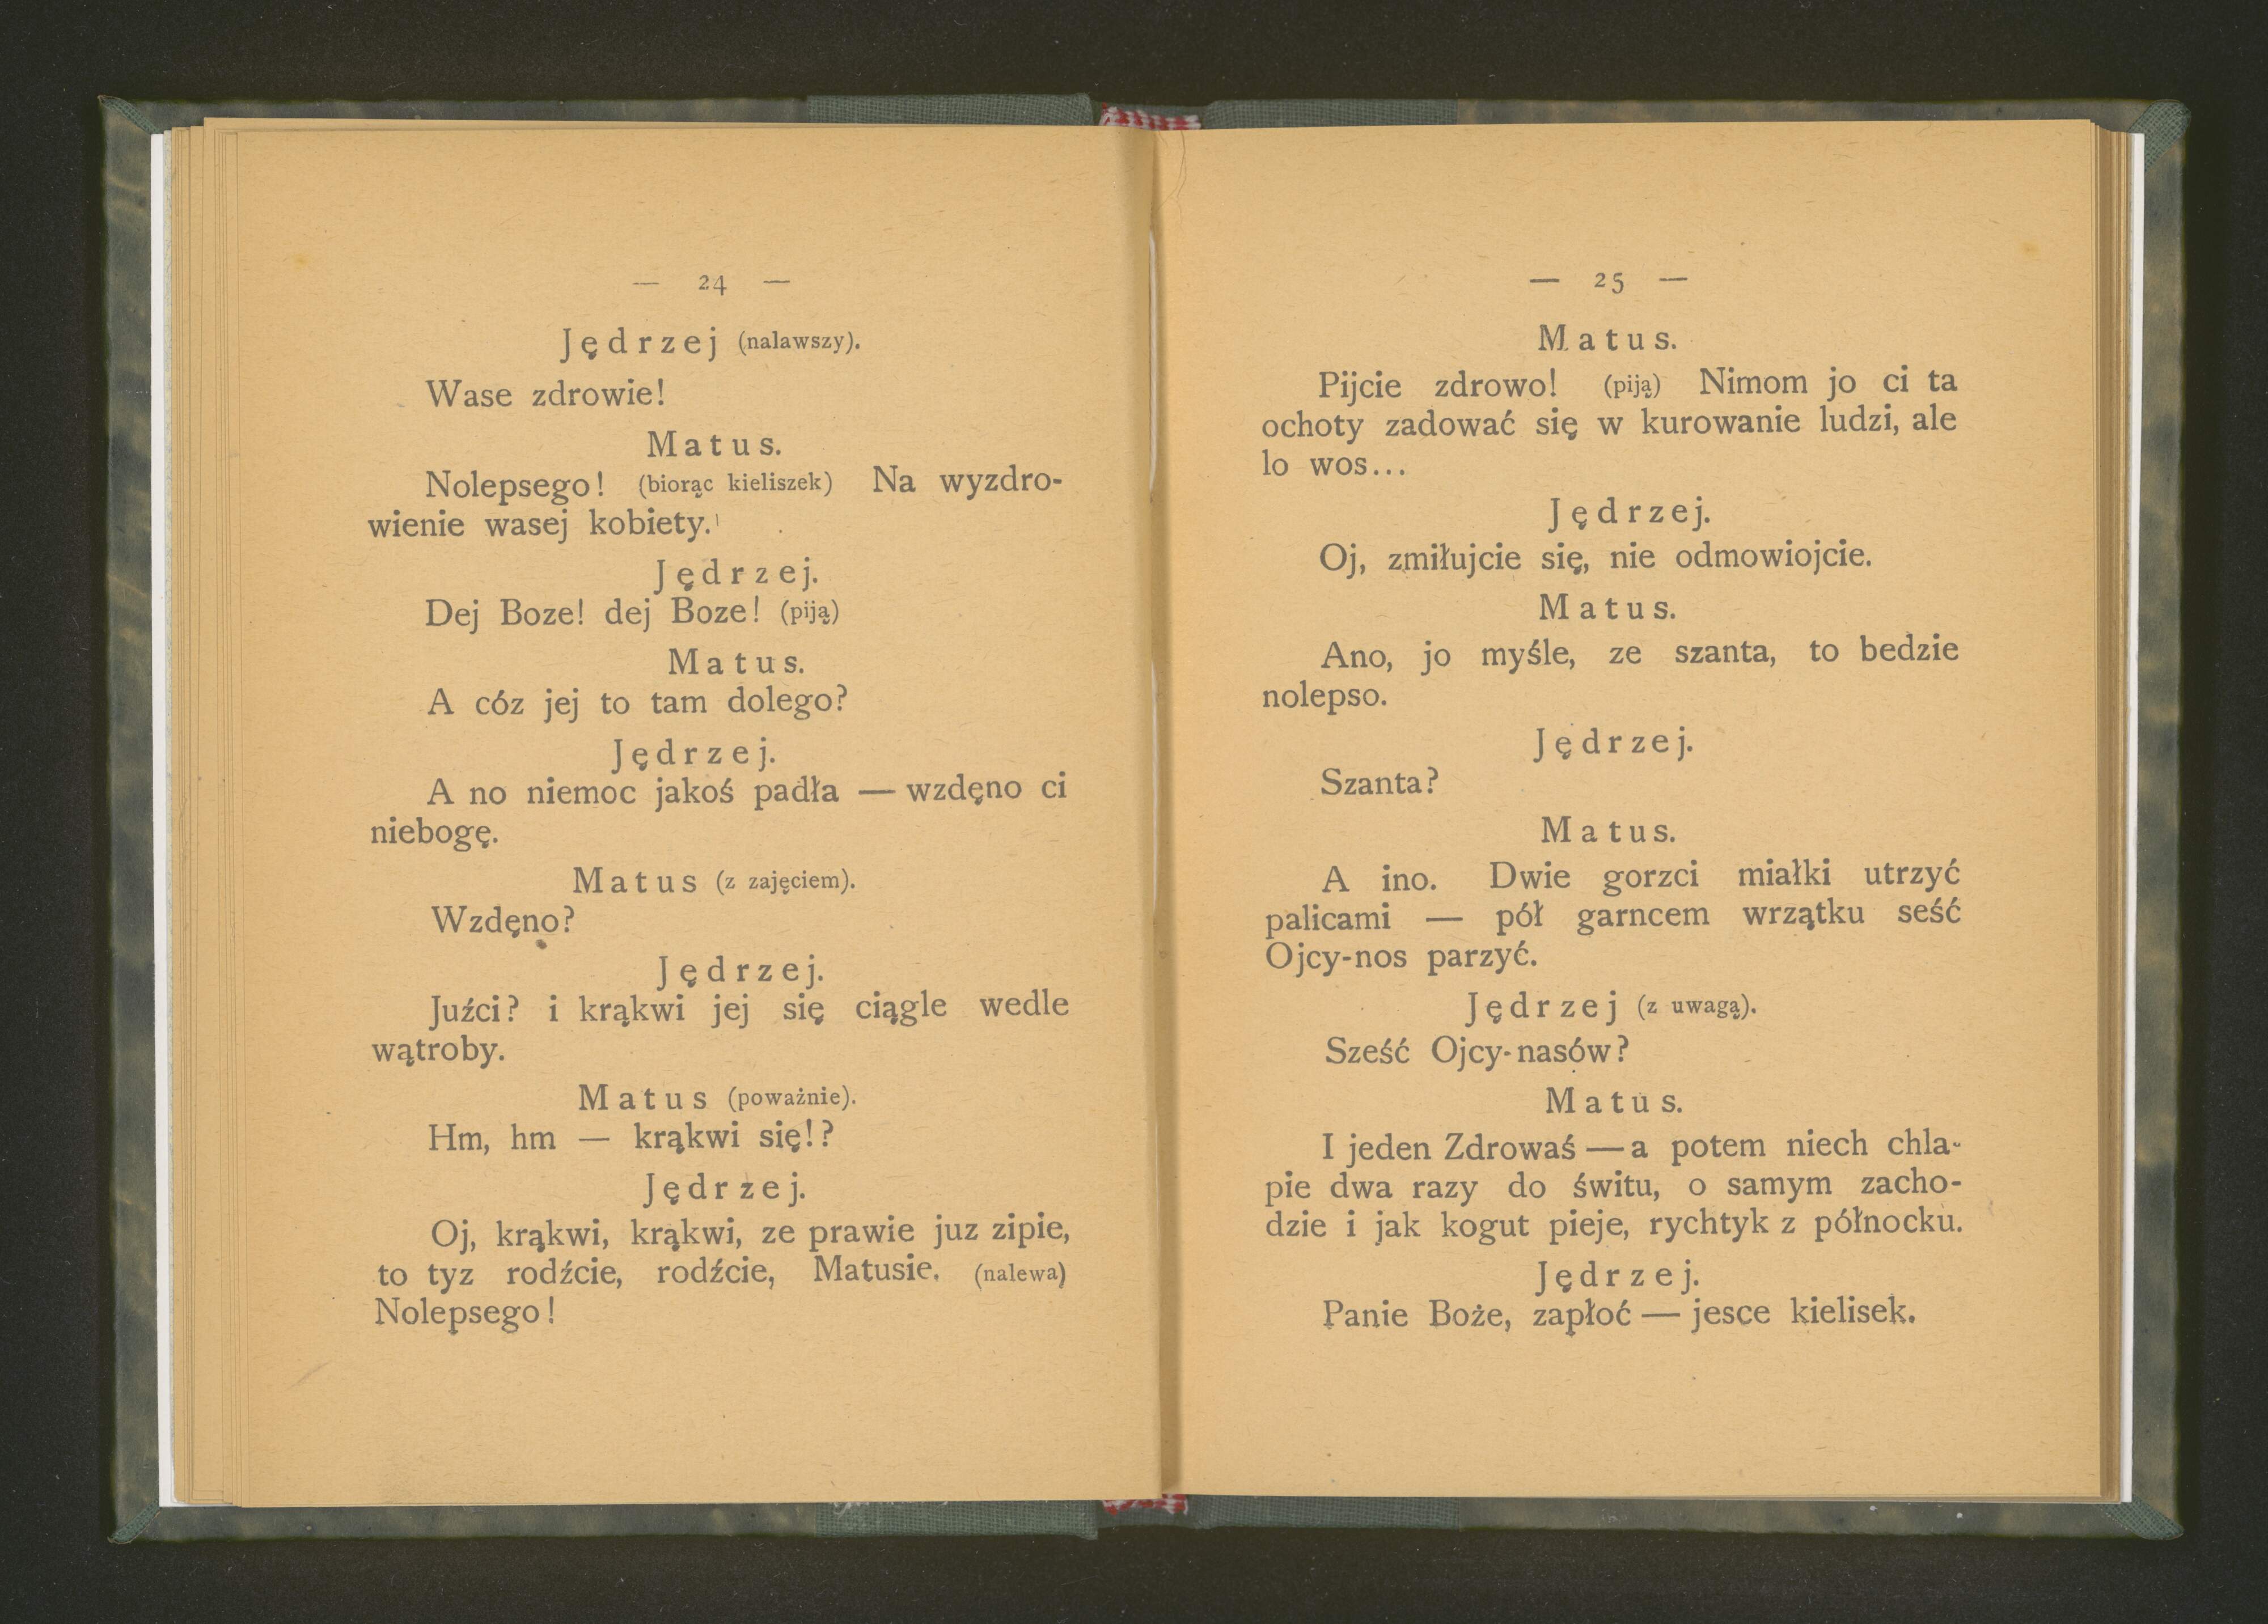 — 24 —
Jędrzej (nalawszy).
Wase zdrowie!
Matus.
Nolepsego! (biorąc kieliszek) Na wyzdro-
wienie wasej kobiety.
Jędrzej.
Dej Boze! dej Boze! (piją)
Matus.
A cóz jej to tam dolego?
Jędrzej.
A no niemoc jakoś padła — wzdęno ci
niebogę.
Matus (z zajęciem).
Wzdęno?
Jędrzej.
Juźci? i krąkwi jej się ciągle wedle
wątroby.
Matus (poważnie).
Hm, hm — krąkwi się!?
Jędrzej.
Oj, krąkwi, krąkwi, ze prawie juz zipie,
to tyz rodźcie, rodźcie, Matusie. (nalewa)
Nolepsego!
— 25 —
Matus.
Pijcie zdrowo! (piją) Nimom jo ci ta
ochoty zadować się w kurowanie ludzi, ale
lo wos...
Jędrzej.
Oj, zmiłujcie się, nie odmowiojcie.
Matus.
Ano, jo myśle, ze szanta, to bedzie
nolepso.
Jędrzej.
Szanta?
Matus.
A ino. Dwie gorzci miałki utrzyć
palicami — pół garncem wrzątku seść
Ojcy-nos parzyć.
Jędrzej (z uwagą).
Sześć Ojcy-nasów?
Matus.
I jeden Zdrowaś — a potem niech chla-
pie dwa razy do świtu, o samym zacho-
dzie i jak kogut pieje, rychtyk z północku.
Jędrzej.
Panie Boże, zapłoć — jesce kielisek.